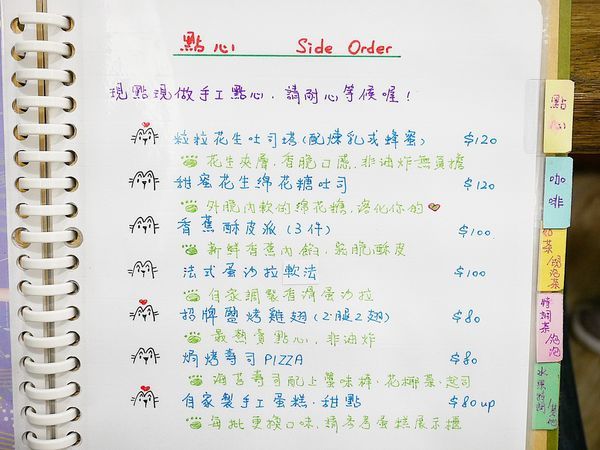 點心 Side Order
現點現做手工點心.請耐心等候喔!
粒粒花生吐司塔(配煉乳或蜂蜜) $120
花生夾層.香脆口感.非油炸無負擔
甜蜜花生綿花糖吐司 $120
外脆內軟的綿花糖.溶化你的
香蕉酥皮派(3件) $100
新鮮香蕉內餡.鬆脆酥皮
法式蛋沙拉軟法 $100
自家調製香滑蛋沙拉
招牌鹽烤雞翅(2腿2翅) $80
最熱賣點心.非油炸
焗烤壽司PIZZA $80
海苔壽司配上蟹味棒.花椰菜.起司
自家製手工蛋糕.甜點 $80up
每批更換口味.請參考蛋糕展示櫃
點心
咖啡